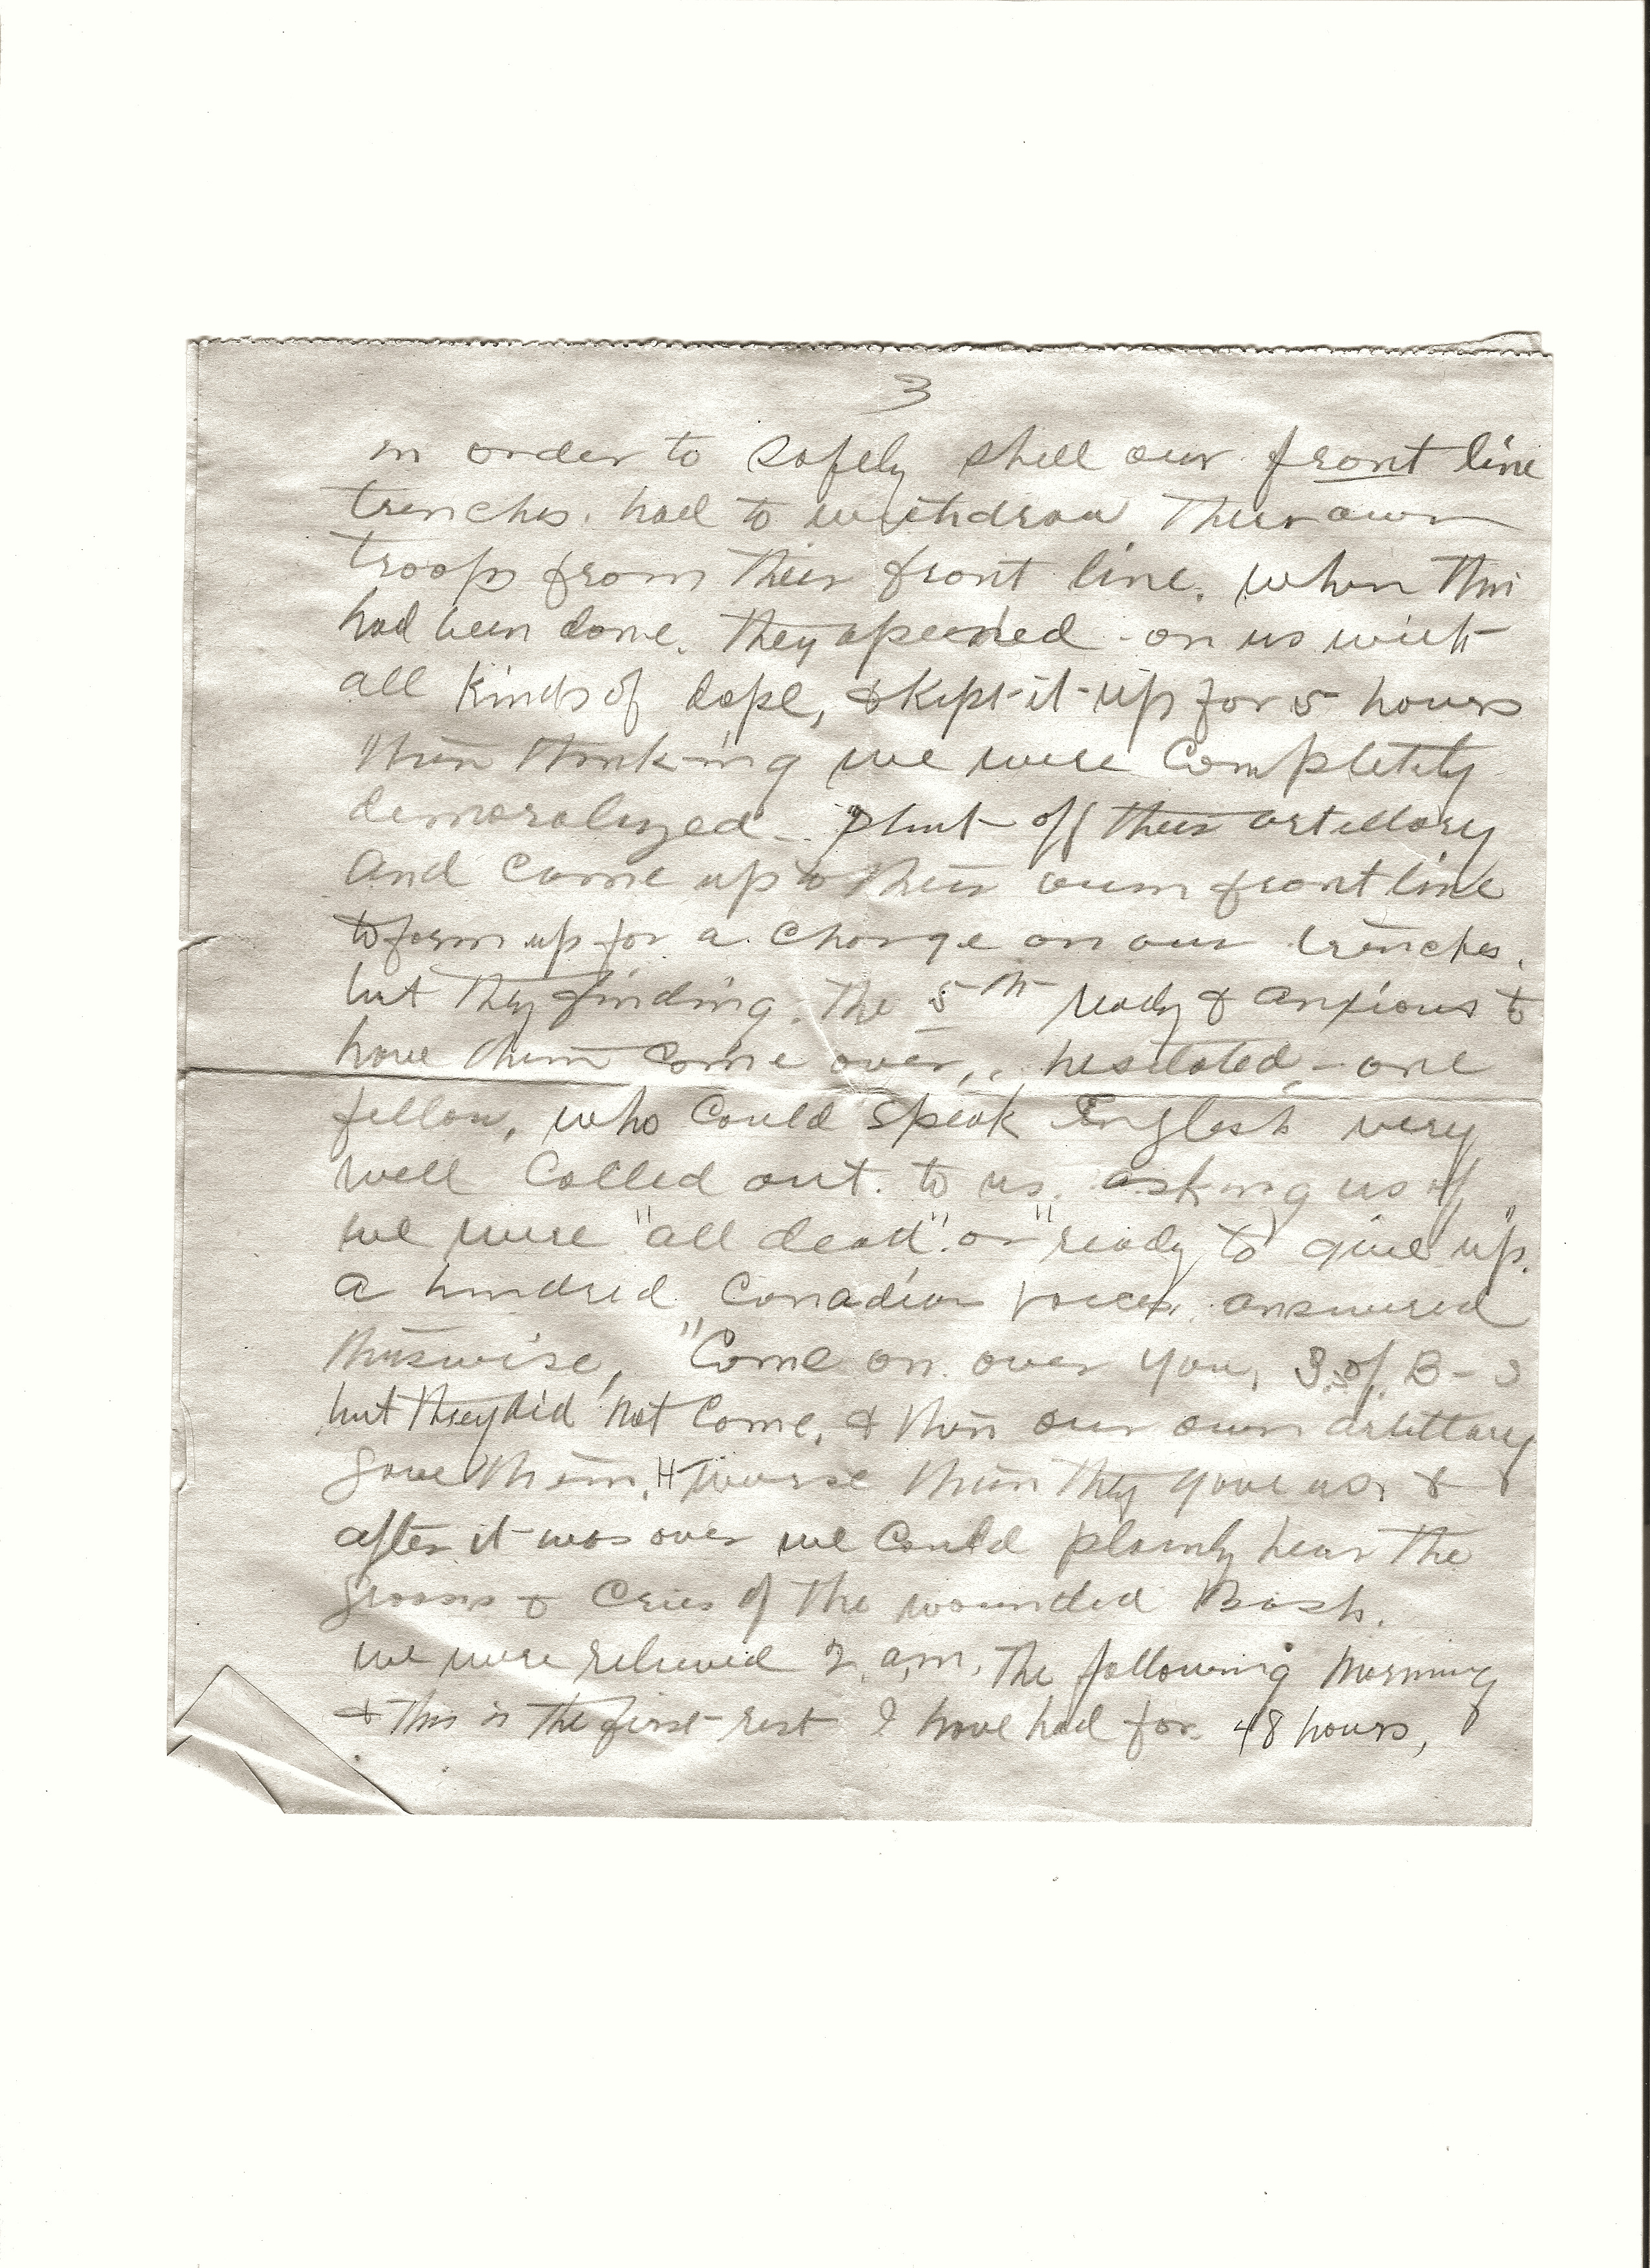 3
in order to safely shell our front line
trenches. had to withdraw their own
troops from their front line. when this
had been done. They opened - on us with
all kinds of dope, & kept it up for 5 hours
then thinking we were completely
demoralyzed - shut off their artillary
and came up to their own front line
to form up for a charge on our trenches.
but they finding. the 5th ready & anxious to
have them come over,. hesitated, - one
fellow, who could speak English very
well called out. to us. asking us if
we were "all dead". or "ready to give up".
a hundred Canadian voices. answered
thuswise, "Come on over you, S. of. B - S
but they did not come, & then our own artillary
gave them. H worse than they gave us, &
after it was over we could plainly hear the
groans & cries of the wounded Bosh.
we were relieved 2, a,m, the following morning
& this is the first rest I have had for 48 hours,